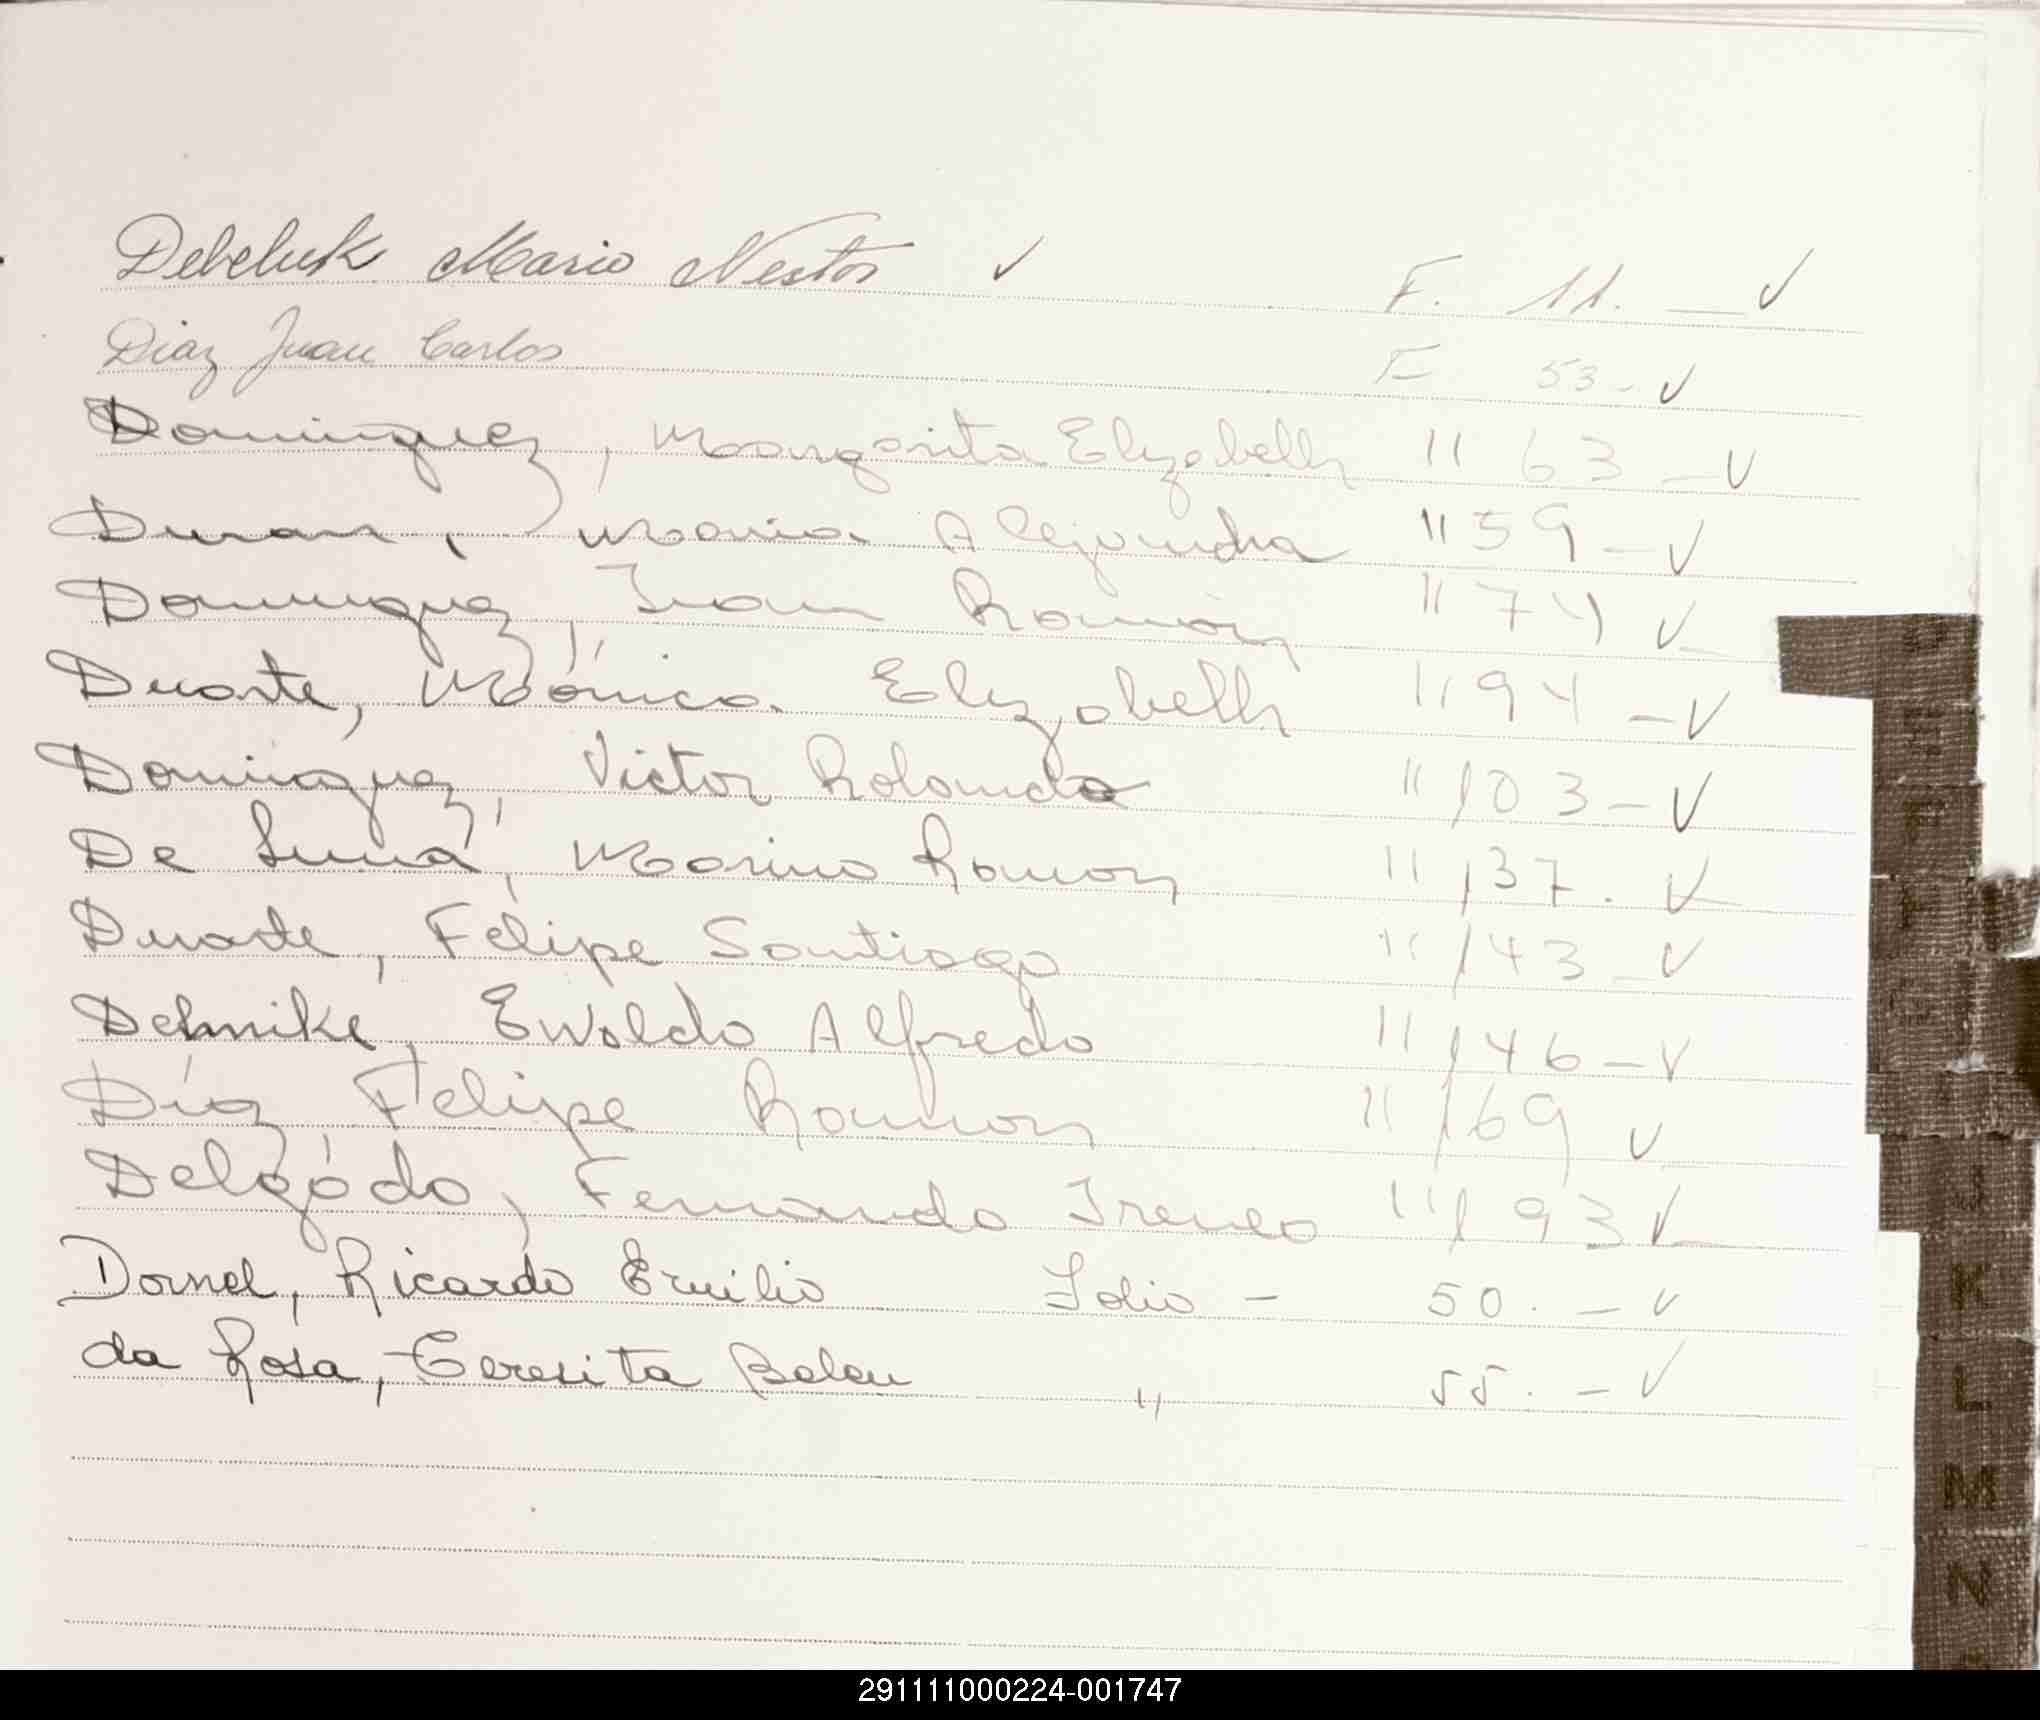 Debeluk Mario Nestor ✓ F. 11. — ✓
Diaz Juan Carlos F 53 - ✓
Dominguez, Margarita Elizabeth " 63 - ✓
Duran, Maria Alejandra " 59 - ✓
Dominguez, Juan Ramón " 74 ✓
Duarte, Mónica Elizabeth " 94 - ✓
Dominguez, Victor Rolando " 103 - ✓
De Luna, Marino Ramon " 137. ✓
Duarte, Felipe Santiago " 143 - ✓
Dehnike, Ewaldo Alfredo " 146 - ✓
Díaz, Felipe Ramon " 169 ✓
Delgado, Fernando Ireneo " 193 ✓
Dornel, Ricardo Emilio Folio - 50. - ✓
da Rosa, Teresita Belen " 55. - ✓
K
L
M
N
291111000224-001747